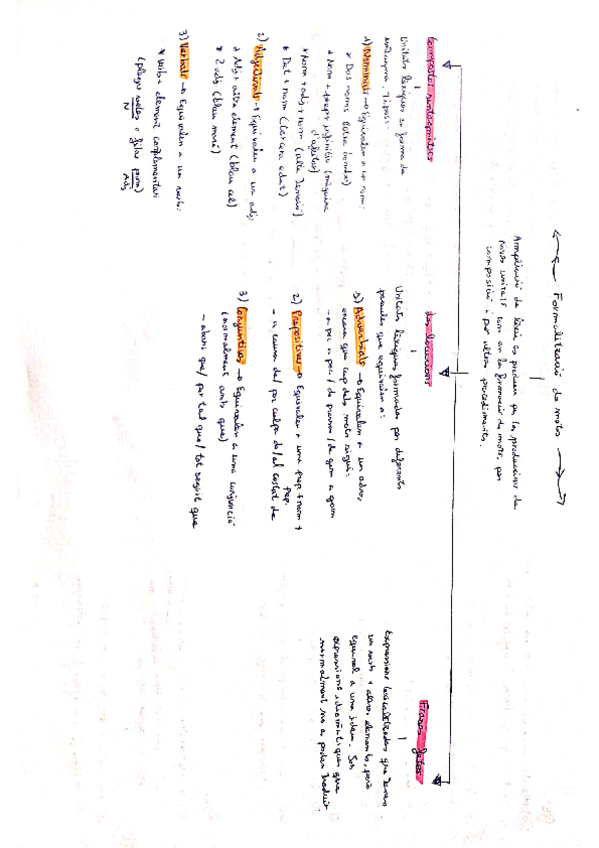 Formalització de mots
Ampliació de lèxic es produeix per la producció de
noves unitats tan en la formació de mots, per
composició i per altres procediments.
Compostos sintagmàtics
Unitats lèxiques en forma de
sintagma. Tipus:
1) Nominals → Equivalen a un nom:
* Dos noms (cotxe bomba)
* Nom + prep + infinitiu (màquina
d'afaitar)
* Nom + adj + nom (alta tensió)
* Det + nom (tercera edat)
2) Adjectivals → Equivalen a un adj:
* Adj + altre element (blau cel)
* 2 adj (blau marí)
3) Verbals → Equivalen a un verb:
* verb + element complementari
(plegar veles o filar prim)
N Adj
Les locucions
Unitats lèxiques formades per diferents
paraules que equivalen a:
1) Adverbials → Equivalen a un adv,
encara que cap dels mots sigui:
- a poc a poc / de pressa / de gom a gom
2) Prepositives → Equivalen a una prep + nom +
prep.
- a causa de / per culpa de / al costat de
3) Conjuntives → Equivalen a una conjunció
(normalment amb que)
- abans que / per tal que / tot seguit que
Frases fetes
Expressions lexicalitzades que tenen
un verb + altres elements, però
equival a una idea. Són
expressions idiomàtiques que
normalment no es poden traduir.